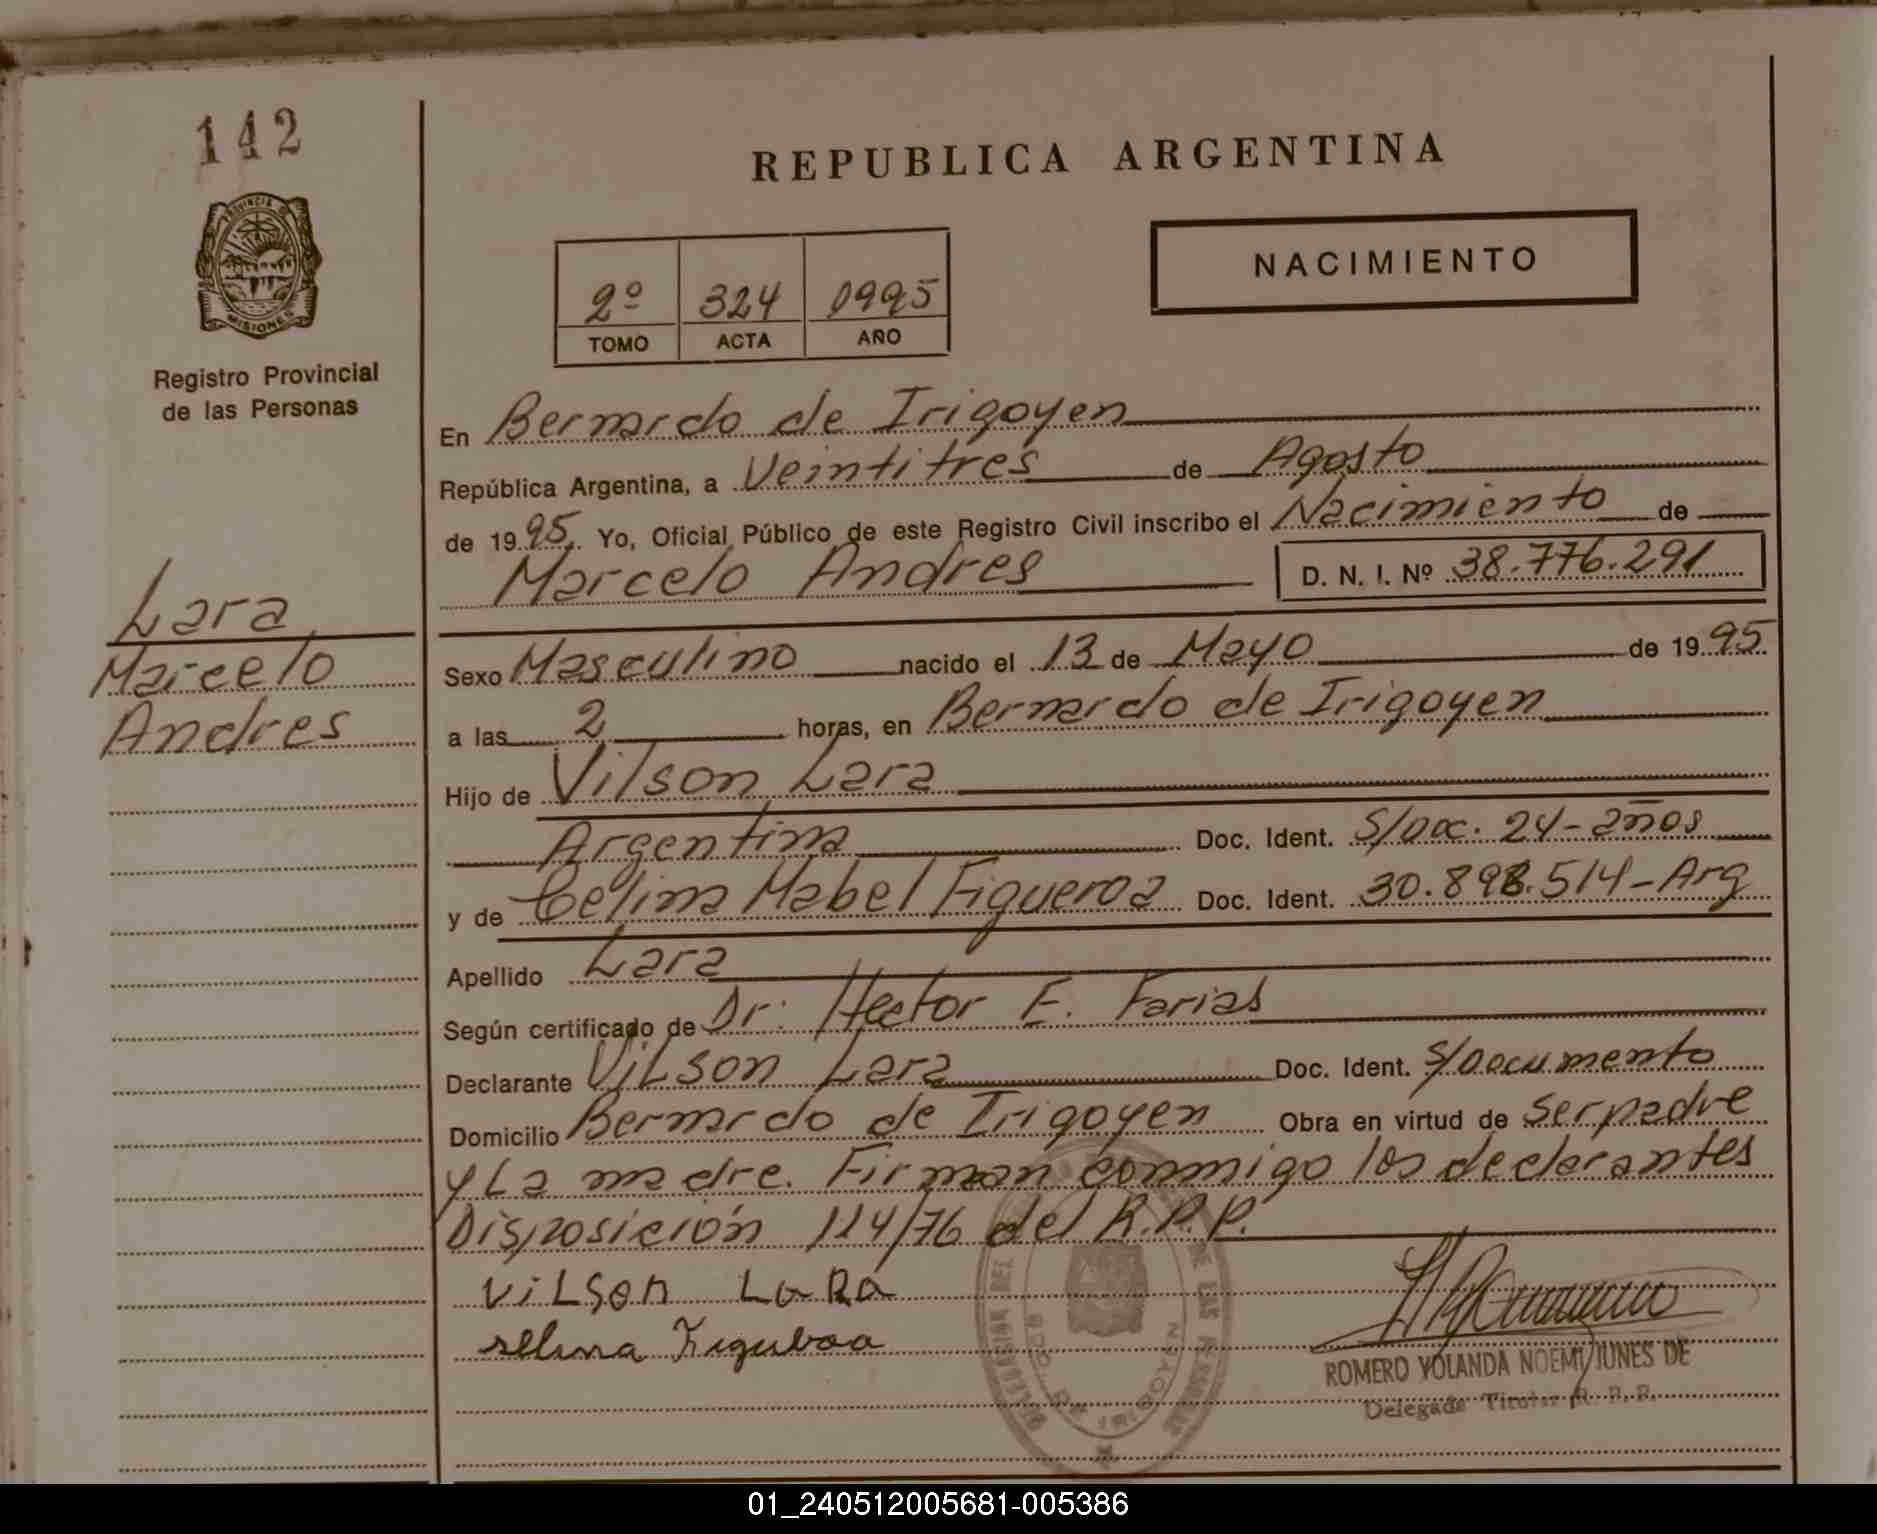 142
REPUBLICA ARGENTINA
PROVINCIA DE
MISIONES
Registro Provincial
de las Personas
NACIMIENTO
2º 324 0995
TOMO ACTA AÑO
En Bernardo de Irigoyen
República Argentina, a Veintitres de Agosto
de 1995. Yo, Oficial Público de este Registro Civil inscribo el Nacimiento de
Marcelo Andres D. N. I. Nº 38.776.291
Lara
Marcelo
Andres
Sexo Masculino nacido el 13 de Mayo de 1995.
a las 2 horas, en Bernardo de Irigoyen
Hijo de Vilson Lara
Argentina Doc. Ident. S/Doc. 24-años
y de Celina Mabel Figueroa Doc. Ident. 30.898.514-Arg
Apellido Lara
Según certificado de Dr. Hector E. Farias
Declarante Vilson Lara Doc. Ident. S/Documento
Domicilio Bernardo de Irigoyen Obra en virtud de ser padre
y La madre. Firman conmigo los declarantes
Disposición 114/76 del R.P.P.
ViLSon LaRa
selina
ROMERO YOLANDA NOEMI JUNES DE
Delegada Titular R. P. P.
DELEGACION DEL DE LAS PERSONAS
BDO. DE IRIGOYEN
01_240512005681-005386